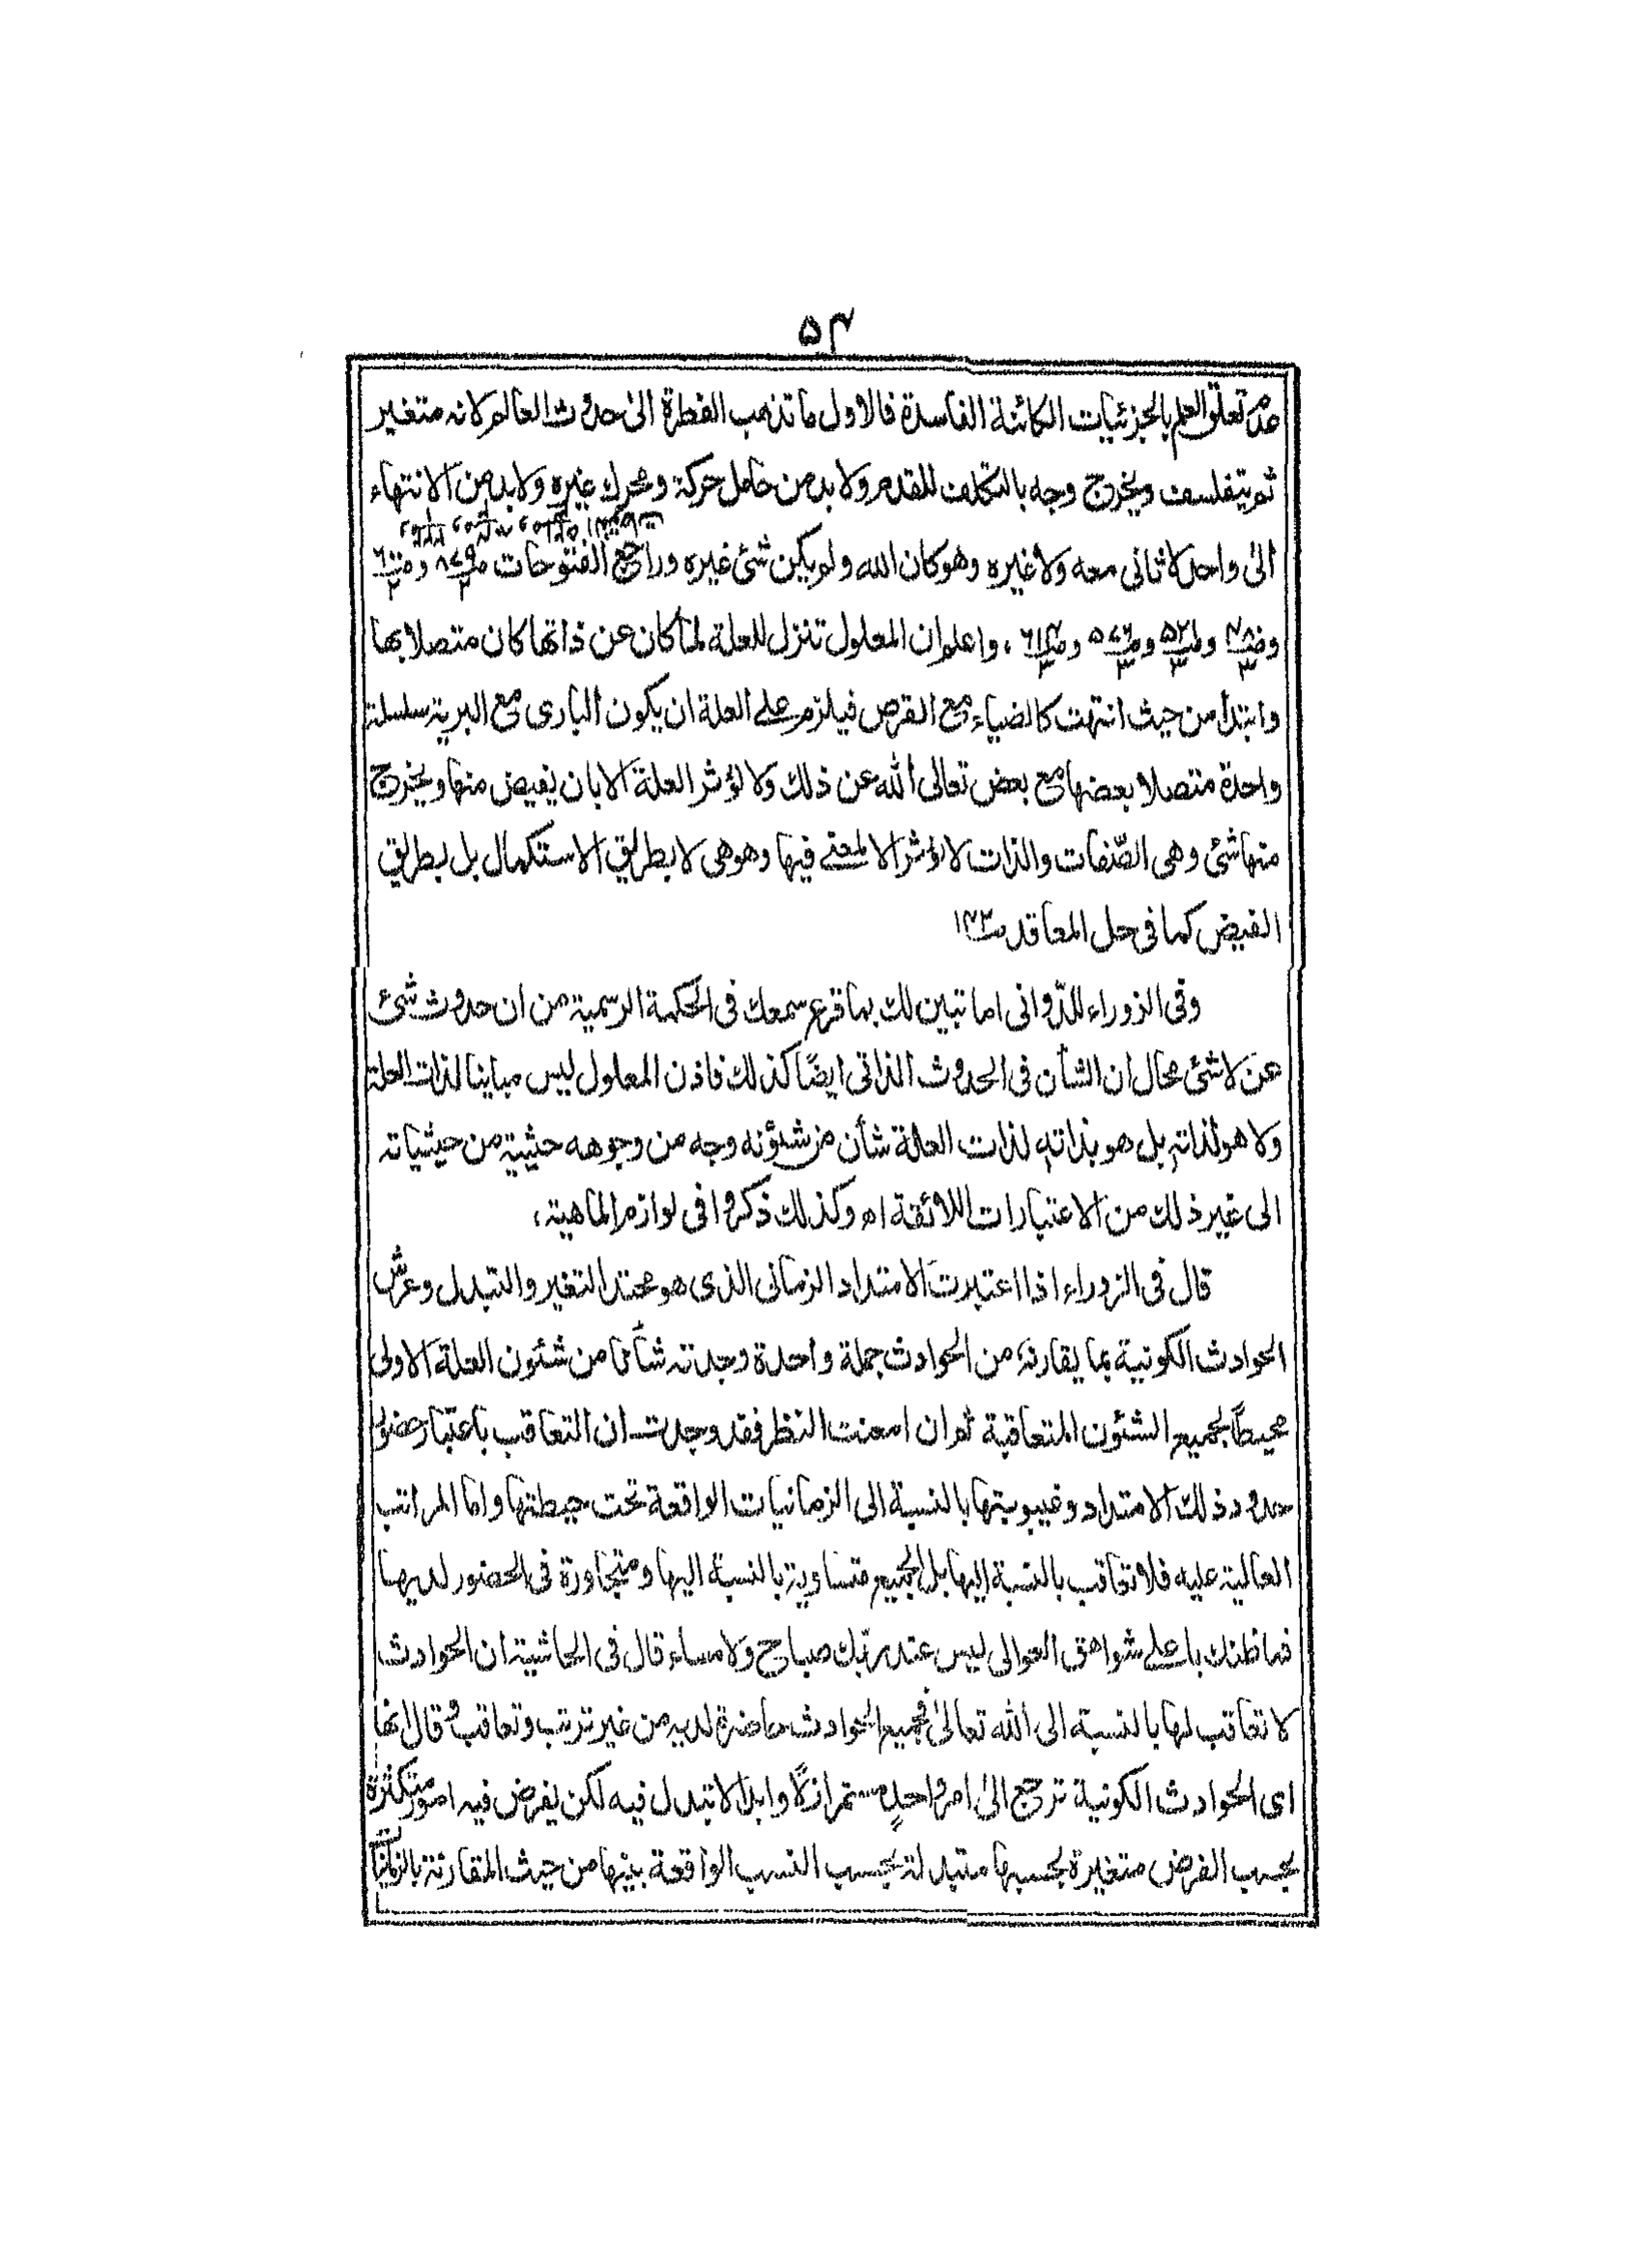 ۵۴
عدم تعلق العلم بالجزئيات الكائنة الفاسدة فالاول ما تذهب الفطرة الى حدوث العالم لانه متغير
ثم يتفلسف ويخرج وجه بالتكلف للقدم ولا بد من حامل حركة ومحرك غيره ولا بد من الانتهاء
الى واحد لا ثانى معه ولا غيره وهو كان الله ولم يكن شئ غيره وراجع الفتوحات
واعلم ان المعلول تنزل للعلة لما كان عن ذاتها كان متصلا بها
وابتدأ من حيث انتهت كالضياء مع القرص فيلزم على العلة ان يكون البارى مع البرية سلسلة
واحدة متصلا بعضها مع بعض تعالى الله عن ذلك ولا تؤثر العلة الا بان يفيض منها ويخرج
منها شئ وهى الصفات والذات لا تؤثر الا لمعنى فيها وهو هى لا بطريق الاستكمال بل بطريق
الفيض كما فى حل المعاقد ص۱۴۳
وفى الزوراء للدوانى اما تبين لك بما قرع سمعك فى الحكمة الرسمية من ان حدوث شئ
عن لا شئ محال ان الشأن فى الحدوث الذاتى ايضًا كذلك فاذن المعلول ليس مباينا لذات العلة
ولا هو لذاته بل هو بذاته لذات العلة شأن من شئونه وجه من وجوهه حيثية من حيثياته
الى غير ذلك من الاعتبارات اللائقة اه وكذلك ذكروا فى لوازم الماهية،
قال فى الزوراء اذا اعتبرت الامتداد الزمانى الذى هو محتد التغير والتبدل وعرش
الحوادث الكونية بما يقارنه من الحوادث جملة واحدة وجدته شأنا من شئون العلة الاولى
محيطًا بجميع الشئون المتعاقبة ثم ان امعنت النظر فقد وجدت ان التعاقب باعتبار حضور
حدود ذلك الامتداد وغيبوبتها بالنسبة الى الزمانيات الواقعة تحت حيطتها واما المراتب
العالية عليه فلا تعاقب بالنسبة اليها بل الجميع متساوية بالنسبة اليها ومتجاورة فى الحضور لديها
فما ظنك باعلى شواهق العوالى ليس عند ربك صباح ولا مساء قال فى الحاشية ان الحوادث
لا تعاقب لها بالنسبة الى الله تعالى فجميع الحوادث حاضرة لديه من غير ترتب وتعاقب وقال انها
اى الحوادث الكونية ترجع الى امر واحدٍ مستمر ازلًا وابدا لا تبدل فيه لكن يفرض فيه امور متكثرة
بحسب الفرض متغيرة بحسبها متبدلة بحسب النسب الواقعة بينها من حيث المقارنة بالزمانيات